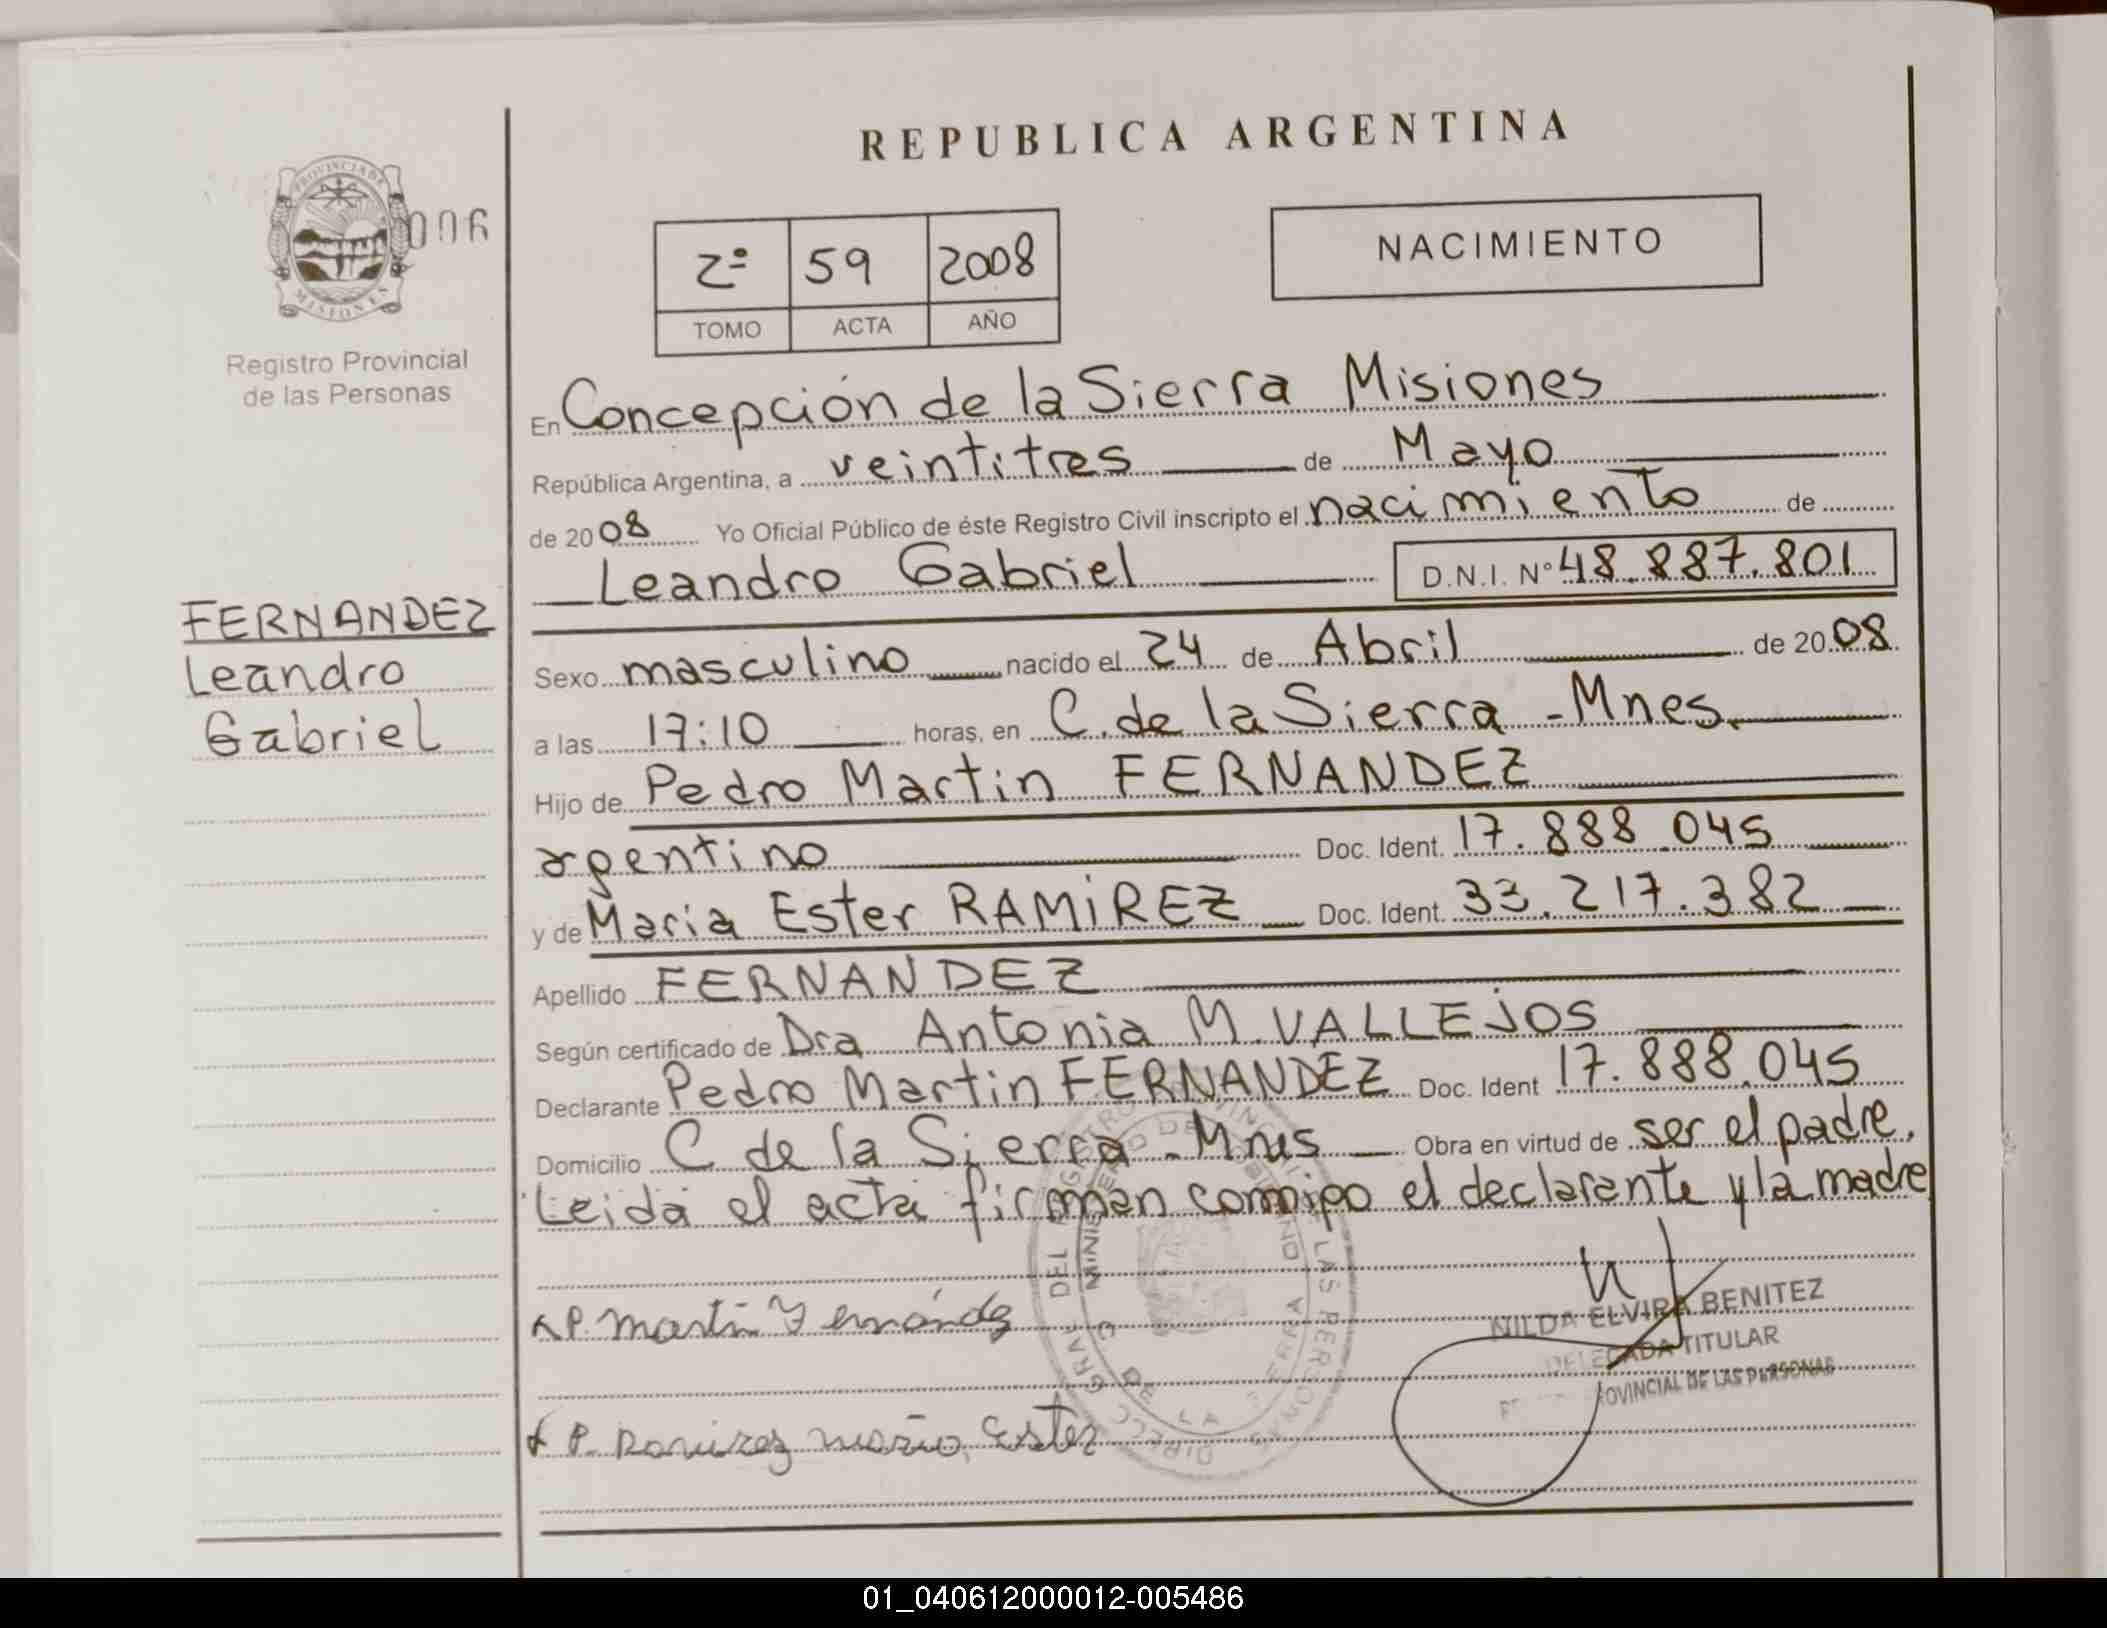 REPUBLICA ARGENTINA
PROVINCIA DE
MISIONES
006
Registro Provincial
de las Personas
2º 59 2008
TOMO ACTA AÑO
NACIMIENTO
En Concepción de la Sierra Misiones
República Argentina, a veintitres de Mayo
de 2008 Yo Oficial Público de éste Registro Civil inscripto el nacimiento de
Leandro Gabriel D.N.I. Nº 48.887.801
FERNANDEZ
Leandro
Gabriel
Sexo masculino nacido el 24 de Abril de 2008
a las 17:10 horas, en C. de la Sierra - Mnes.
Hijo de Pedro Martin FERNANDEZ
argentino Doc. Ident. 17.888.045
y de Maria Ester RAMIREZ Doc. Ident. 33.217.382
Apellido FERNANDEZ
Según certificado de Dra Antonia M. VALLEJOS
Declarante Pedro Martin FERNANDEZ Doc. Ident 17.888.045
Domicilio C de la Sierra - Mnes Obra en virtud de ser el padre.
Leida el acta firman conmigo el declarante y la madre
P. Martin Fernández
P. Ramirez Maria Ester
NILDA ELVIRA BENITEZ
DELEGADA TITULAR
PROVINCIAL DE LAS PERSONAS
01_040612000012-005486